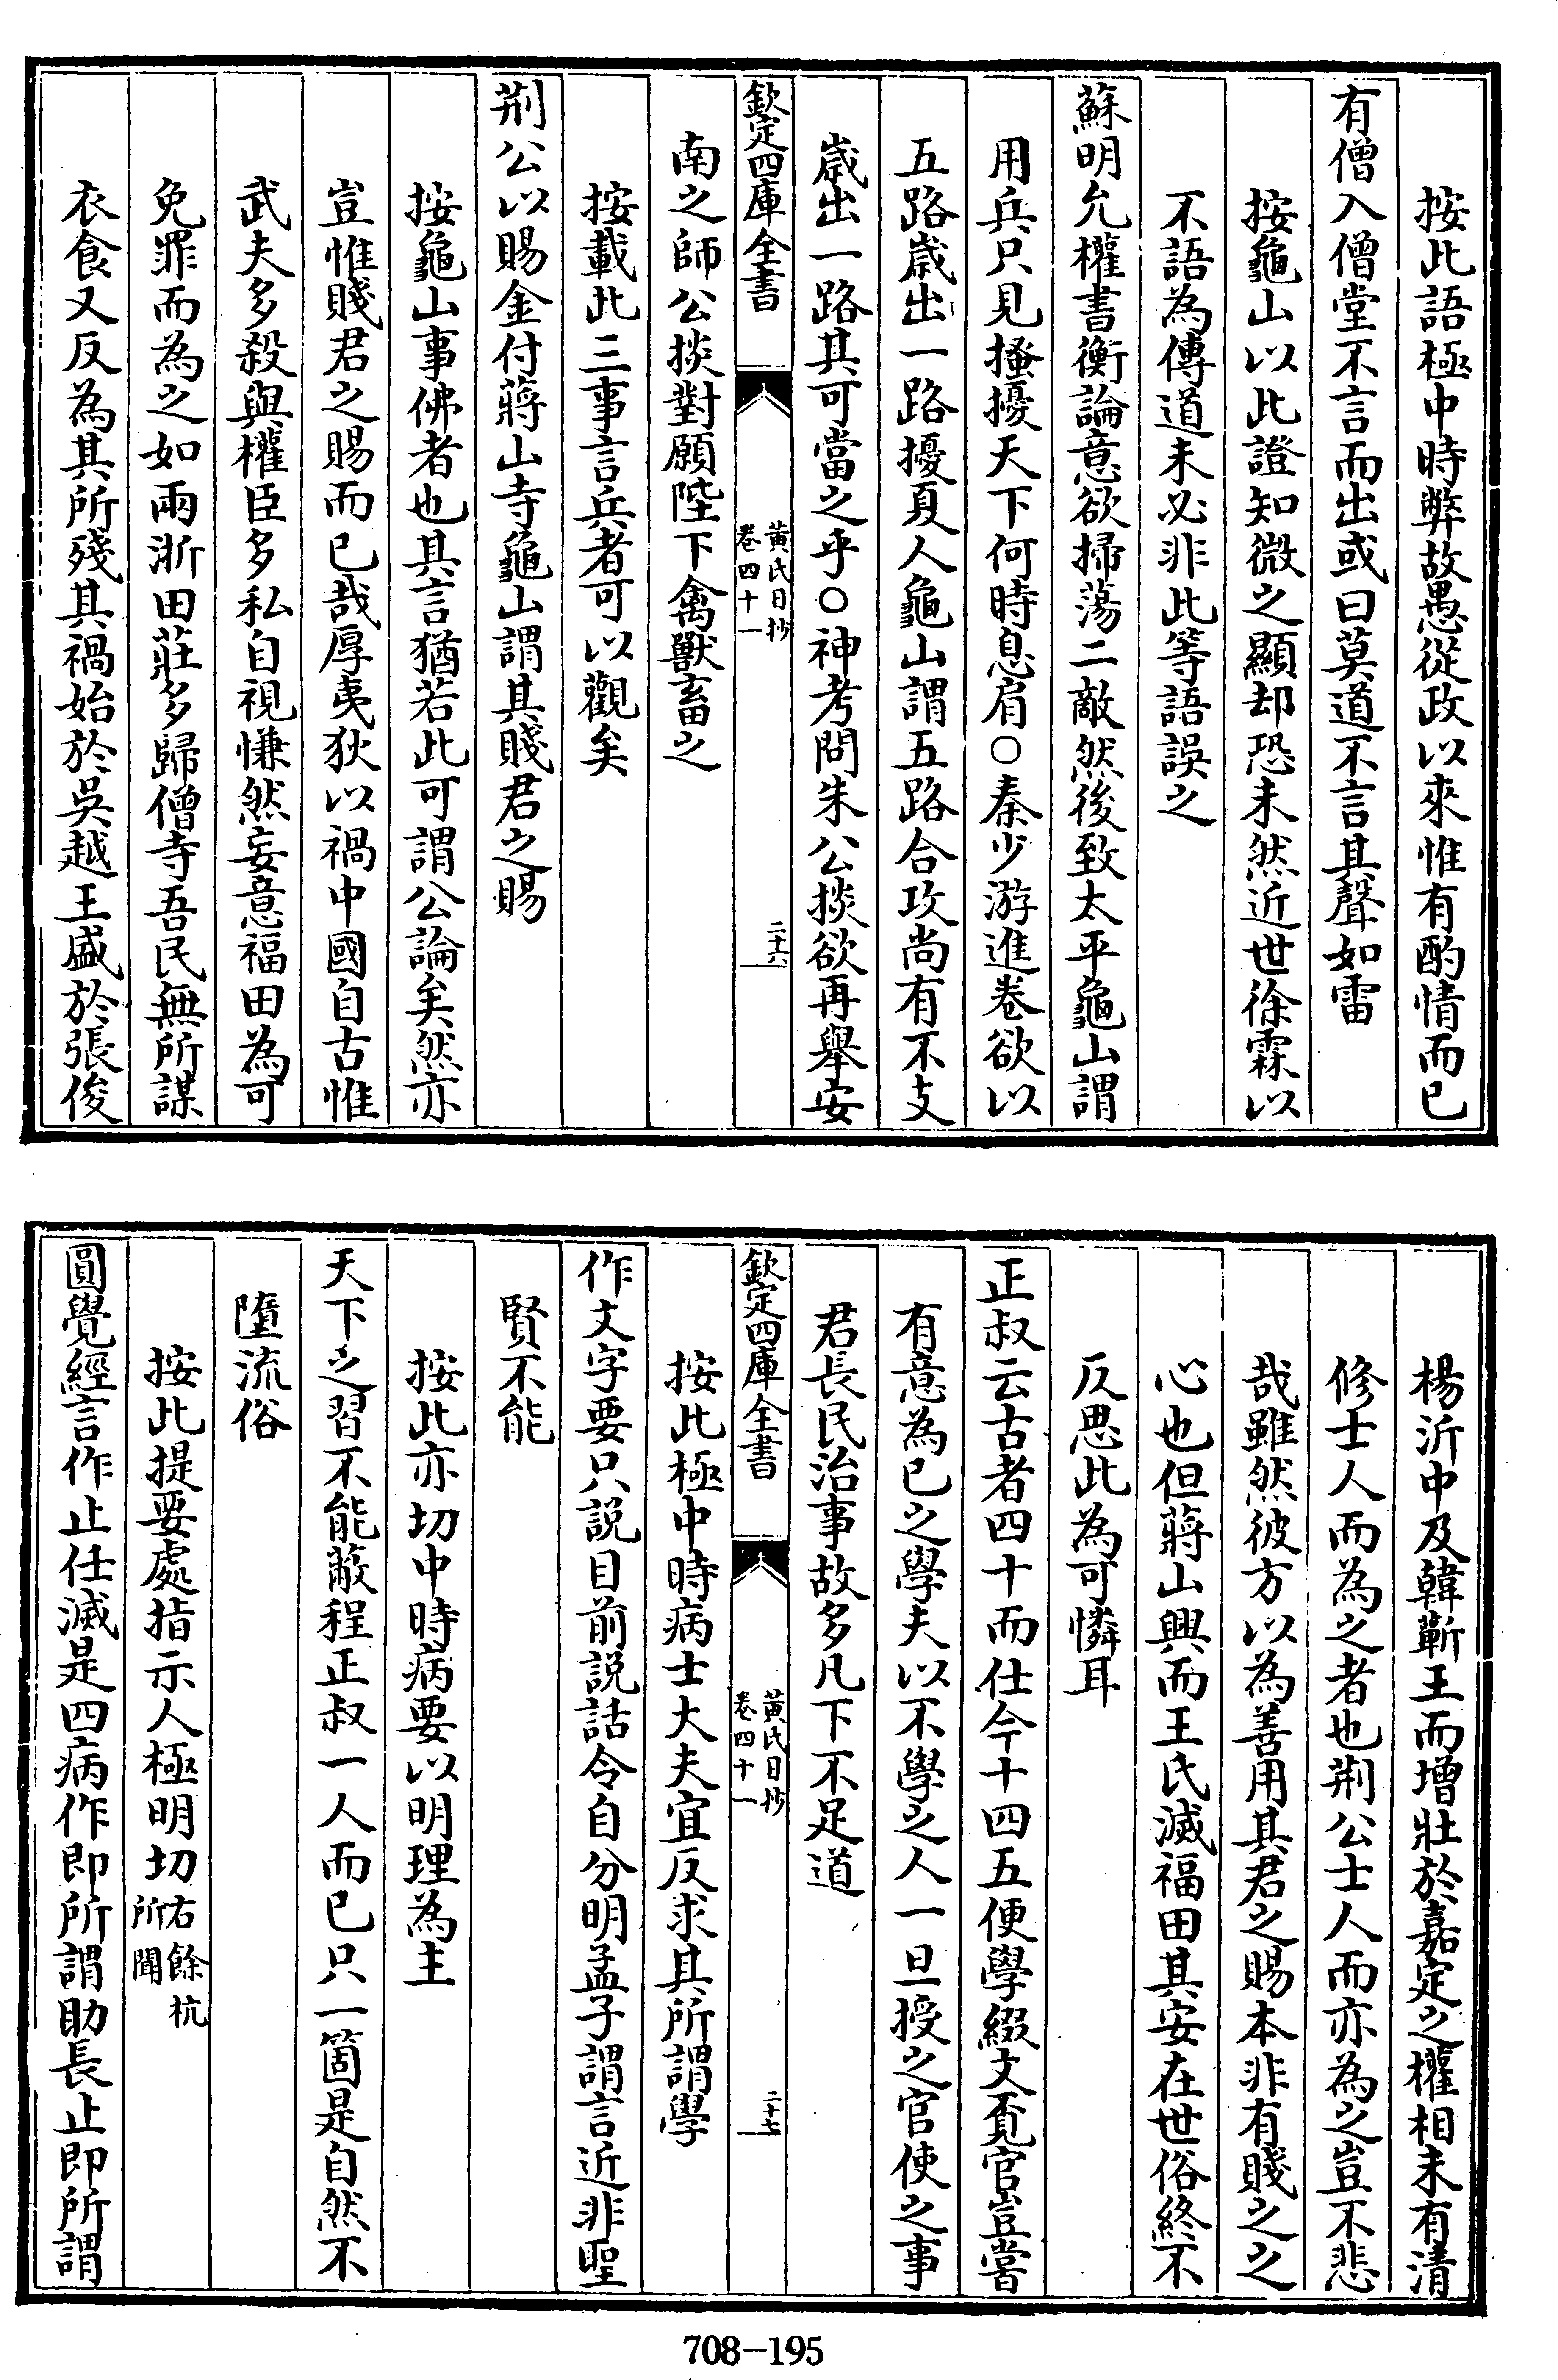 按此語極中時弊故愚從政以來惟有酌情而已
有僧入僧堂不言而出或曰莫道不言其聲如雷
按龜山以此證知微之顯却恐未然近世徐霖以
不語為傳道未必非此等語誤之
蘇明允權書衡論意欲掃蕩二敵然後致太平龜山謂
用兵只見搔擾天下何時息肩○秦少游進卷欲以
五路歲出一路擾夏人龜山謂五路合攻尚有不支
歲出一路其可當之乎○神考問朱公掞欲再舉安
欽定四庫全書
黃氏日抄
卷四十一
二十六
南之師公掞對願陛下禽獸畜之
按載此三事言兵者可以觀矣
荆公以賜金付蔣山寺龜山謂其賤君之賜
按龜山事佛者也其言猶若此可謂公論矣然亦
豈惟賤君之賜而已哉厚夷狄以禍中國自古惟
武夫多殺與權臣多私自視慊然妄意福田為可
免罪而為之如兩浙田莊多歸僧寺吾民無所謀
衣食又反為其所殘其禍始於吳越王盛於張俊
楊沂中及韓蘄王而增壯於嘉定之權相未有清
修士人而為之者也荆公士人而亦為之豈不悲
哉雖然彼方以為善用其君之賜本非有賤之之
心也但蔣山興而王氏滅福田其安在世俗終不
反思此為可憐耳
正叔云古者四十而仕今十四五便學綴文覔官豈嘗
有意為已之學夫以不學之人一旦授之官使之事
君長民治事故多凡下不足道
欽定四庫全書
黃氏日抄
卷四十一
二十七
按此極中時病士大夫宜反求其所謂學
作文字要只説目前説話令自分明孟子謂言近非聖
賢不能
按此亦切中時病要以明理為主
天下之習不能蔽程正叔一人而已只一箇是自然不
墮流俗
按此提要處指示人極明切右餘杭
所聞
圓覺經言作止任滅是四病作即所謂助長止即所謂
708-195